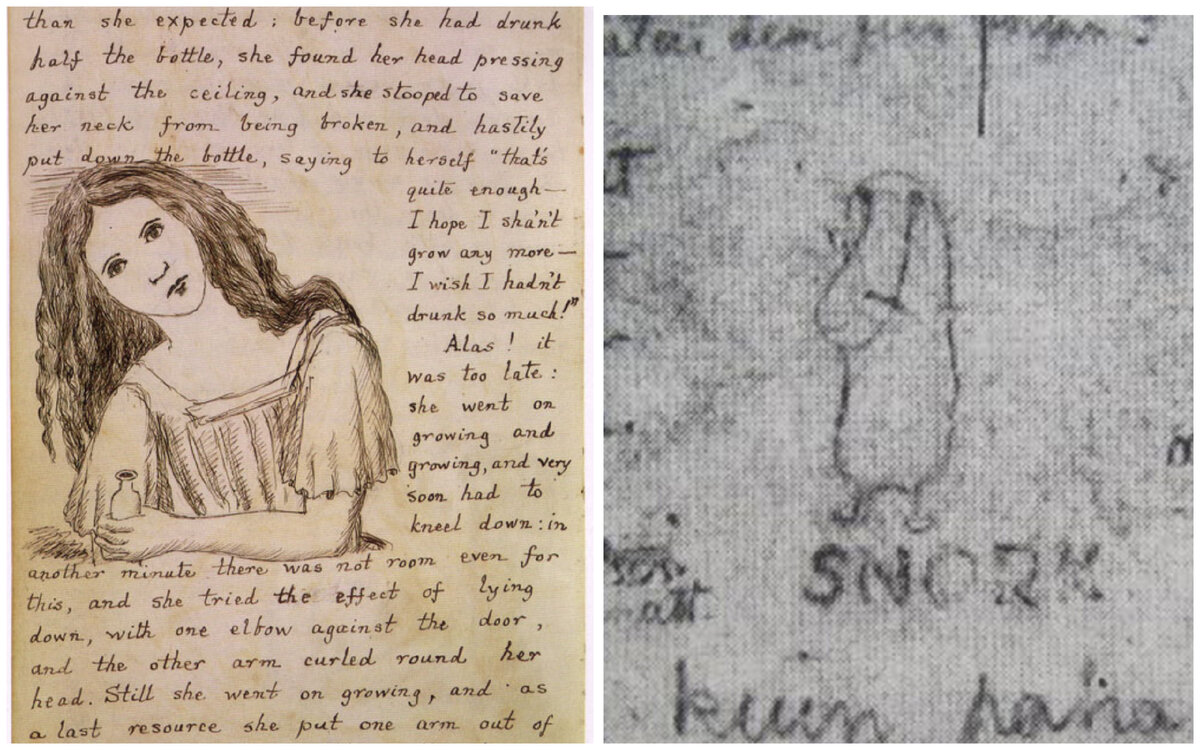 than she expected : before she had drunk
half the bottle, she found her head pressing
against the ceiling, and she stooped to save
her neck from being broken, and hastily
put down the bottle, saying to herself "that's
quite enough—
I hope I sha'n't
grow any more—
I wish I hadn't
drunk so much!"
Alas! it
was too late :
she went on
growing and
growing, and very
soon had to
kneel down : in
another minute there was not room even for
this, and she tried the effect of lying
down, with one elbow against the door,
and the other arm curled round her
head. Still she went on growing, and as
a last resource she put one arm out of
SNORK
kuin paha